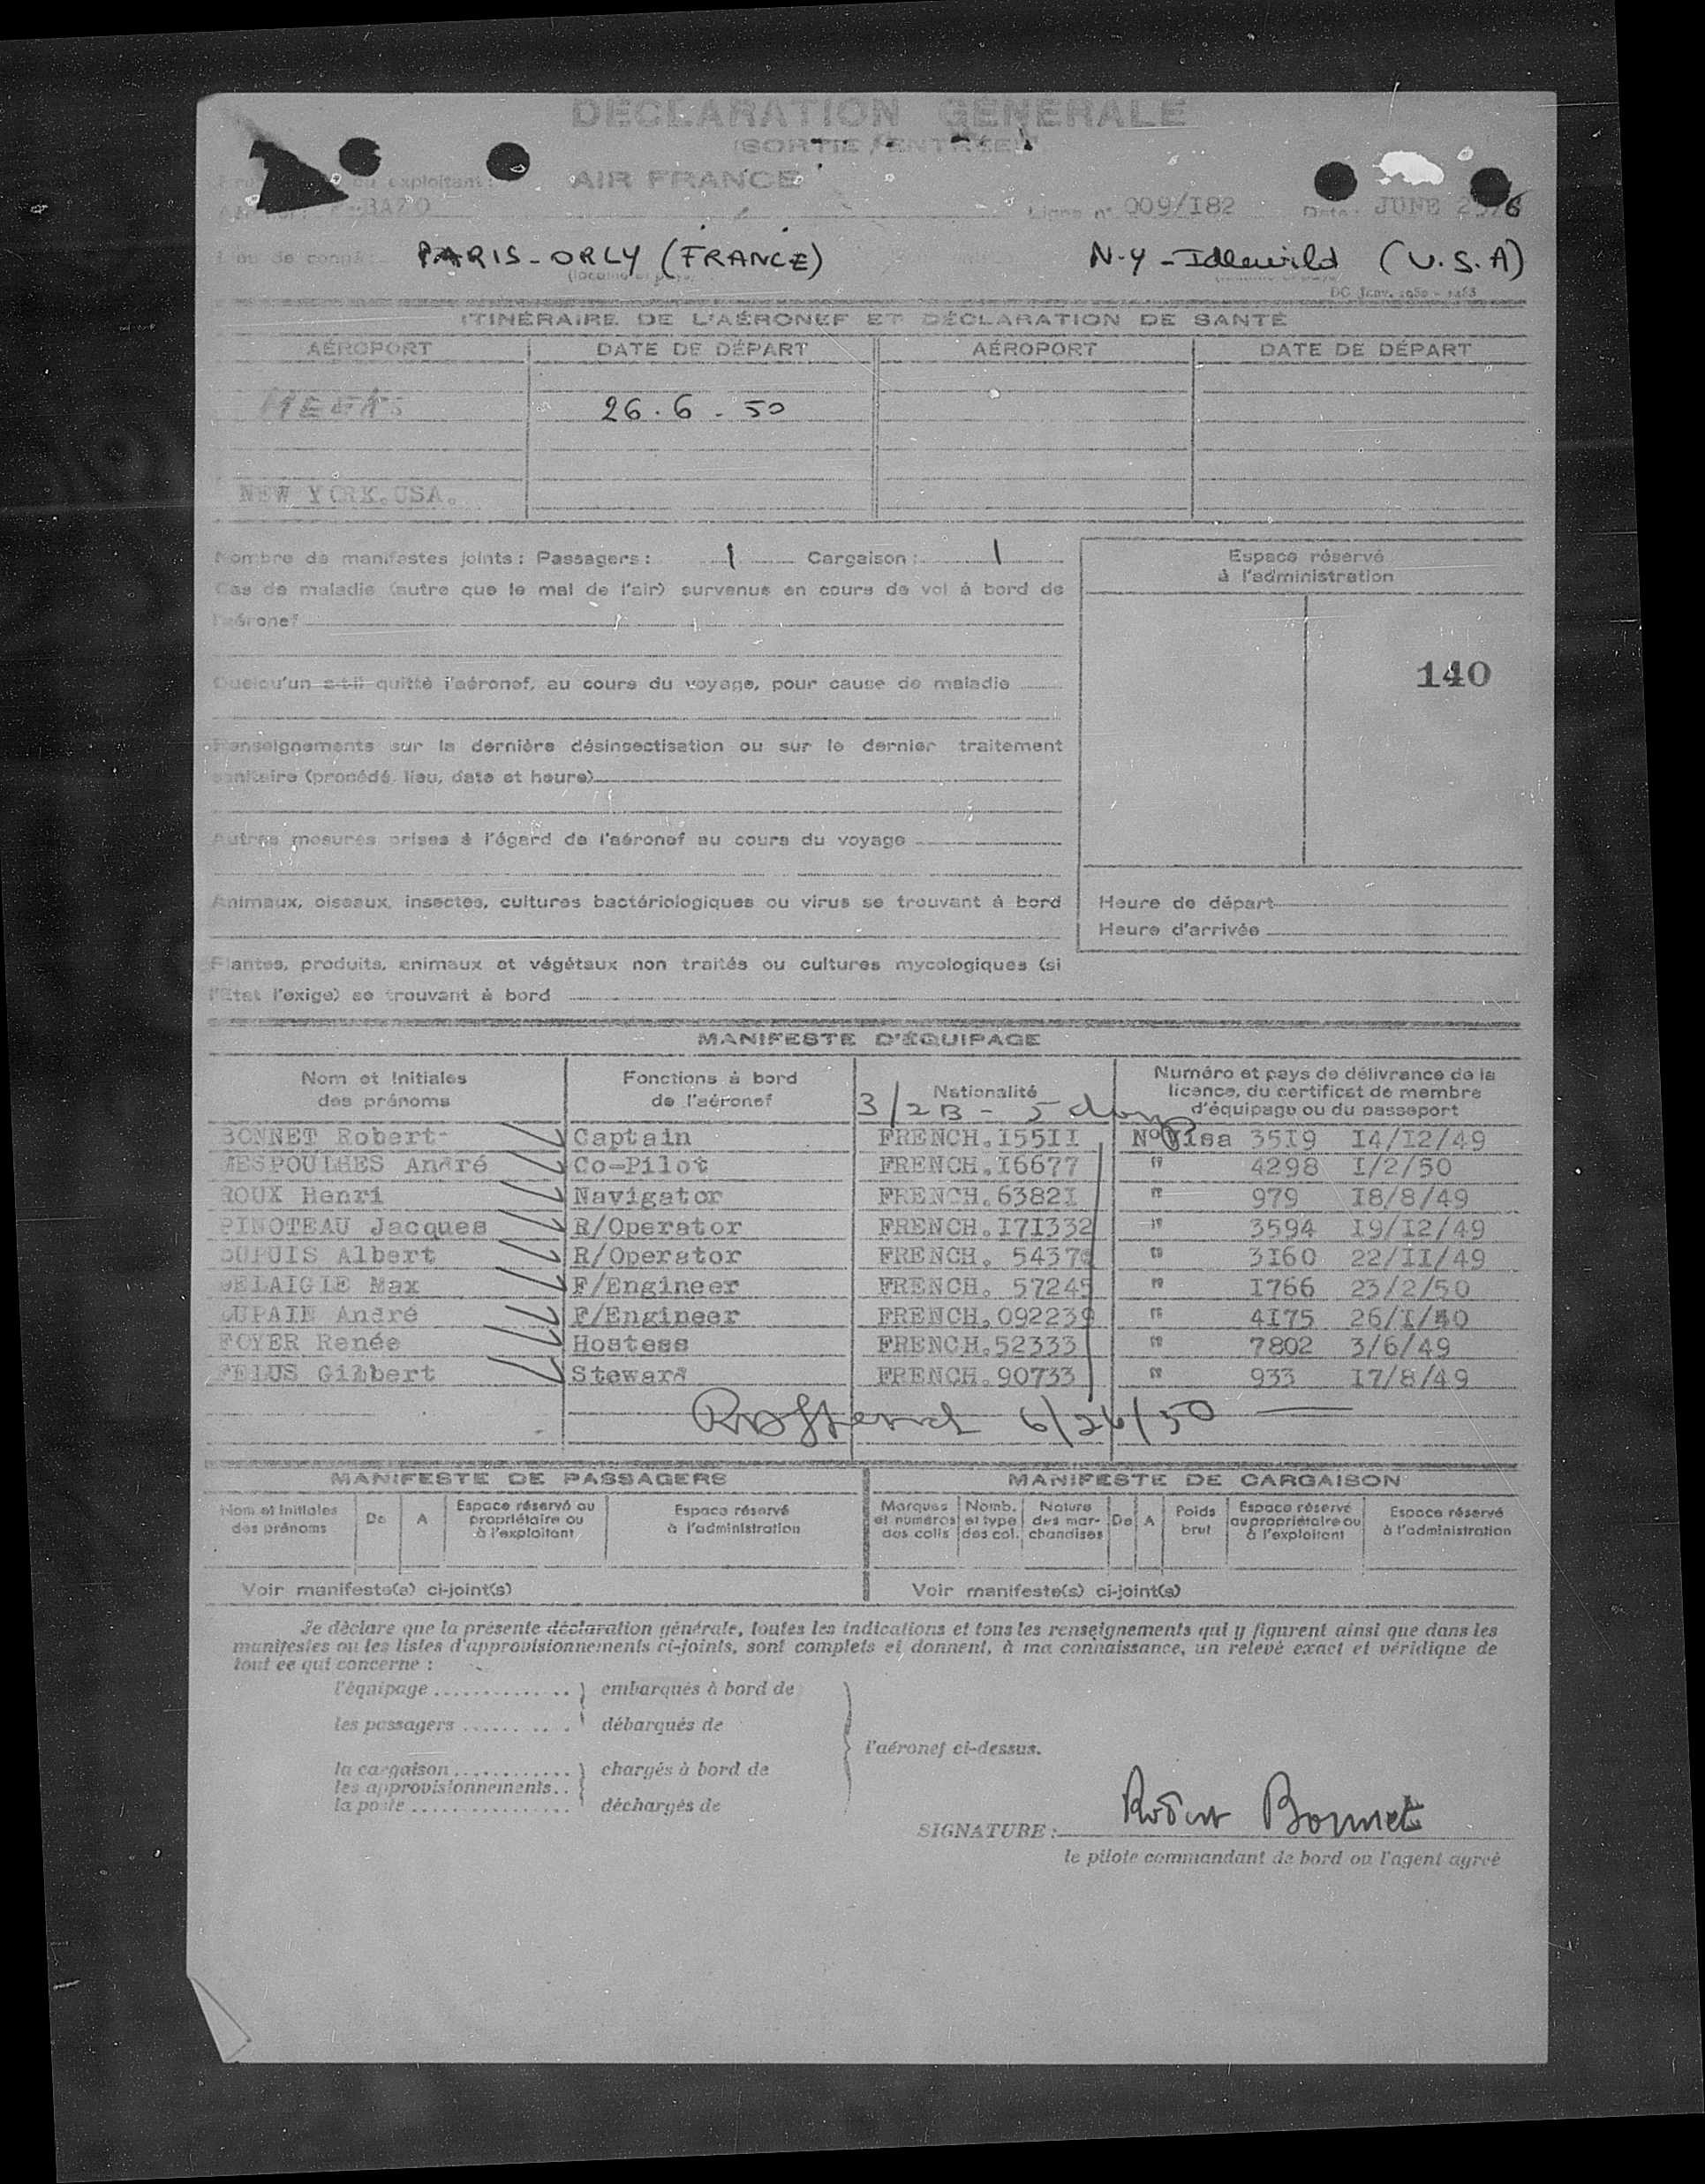 DÉCLARATION GÉNÉRALE
(SORTIE / ENTRÉE)
exploitant: AIR FRANCE
-BAZO Ligne n° 009/I82 Date: JUNE 6
PARIS-ORLY (FRANCE) N-Y-Idlewild (U.S.A)
ITINÉRAIRE DE L'AÉRONEF ET DÉCLARATION DE SANTÉ
AÉROPORT DATE DE DÉPART AÉROPORT DATE DE DÉPART
26.6-50
NEW YORK.USA.
Nombre de manifestes joints: Passagers: 1 Cargaison: 1
Cas de maladie (autre que le mal de l'air) survenus en cours de vol à bord de
l'aéronef
Quelqu'un a-t-il quitté l'aéronef, au cours du voyage, pour cause de maladie
Renseignements sur la dernière désinsectisation ou sur le dernier traitement
sanitaire (procédé, lieu, date et heure)
Autres mesures prises à l'égard de l'aéronef au cours du voyage
Animaux, oiseaux, insectes, cultures bactériologiques ou virus se trouvant à bord
Plantes, produits, animaux et végétaux non traités ou cultures mycologiques (si
l'État l'exige) se trouvant à bord
Espace réservé
à l'administration
140
Heure de départ
Heure d'arrivée
MANIFESTE D'ÉQUIPAGE
Nom et Initiales des prénoms
Fonctions à bord de l'aéronef
Nationalité
Numéro et pays de délivrance de la licence, du certificat de membre d'équipage ou du passeport
3/2B - 5
BONNET Robert Captain FRENCH.I55II N° Visa 35I9 I4/I2/49
André Co-Pilot FRENCH.I6677 " 4298 I/2/50
ROUX Henri Navigator FRENCH.6382I " 979 I8/8/49
PINOTEAU Jacques R/Operator FRENCH.I7I332 " 3594 I9/I2/49
DUPUIS Albert R/Operator FRENCH. 5437 " 3I60 22/II/49
DELAIGLE Max F/Engineer FRENCH. 57245 " I766 23/2/50
André F/Engineer FRENCH.092239 " 4I75 26/I/50
FOYER Renée Hostess FRENCH.52333 " 7802 3/6/49
FELUS Gilbert Steward FRENCH.90733 " 933 I7/8/49
6/26/50
MANIFESTE DE PASSAGERS MANIFESTE DE CARGAISON
Nom et Initiales des prénoms
De
A
Espace réservé au propriétaire ou à l'exploitant
Espace réservé à l'administration
Marques et numéros des colis
Nomb. et type des col.
Nature des marchandises
De
A
Poids brut
Espace réservé au propriétaire ou à l'exploitant
Espace réservé à l'administration
Voir manifeste(s) ci-joint(s) Voir manifeste(s) ci-joint(s)
Je déclare que la présente déclaration générale, toutes les indications et tous les renseignements qui y figurent ainsi que dans les
manifestes ou les listes d'approvisionnements ci-joints, sont complets et donnent, à ma connaissance, un relevé exact et véridique de
tout ce qui concerne :
l'équipage .............. embarqués à bord de
les passagers ........... débarqués de
l'aéronef ci-dessus.
la cargaison ............ chargés à bord de
les approvisionnements..
la poste ................ déchargés de
SIGNATURE : Robert Bonnet
le pilote commandant de bord ou l'agent agréé